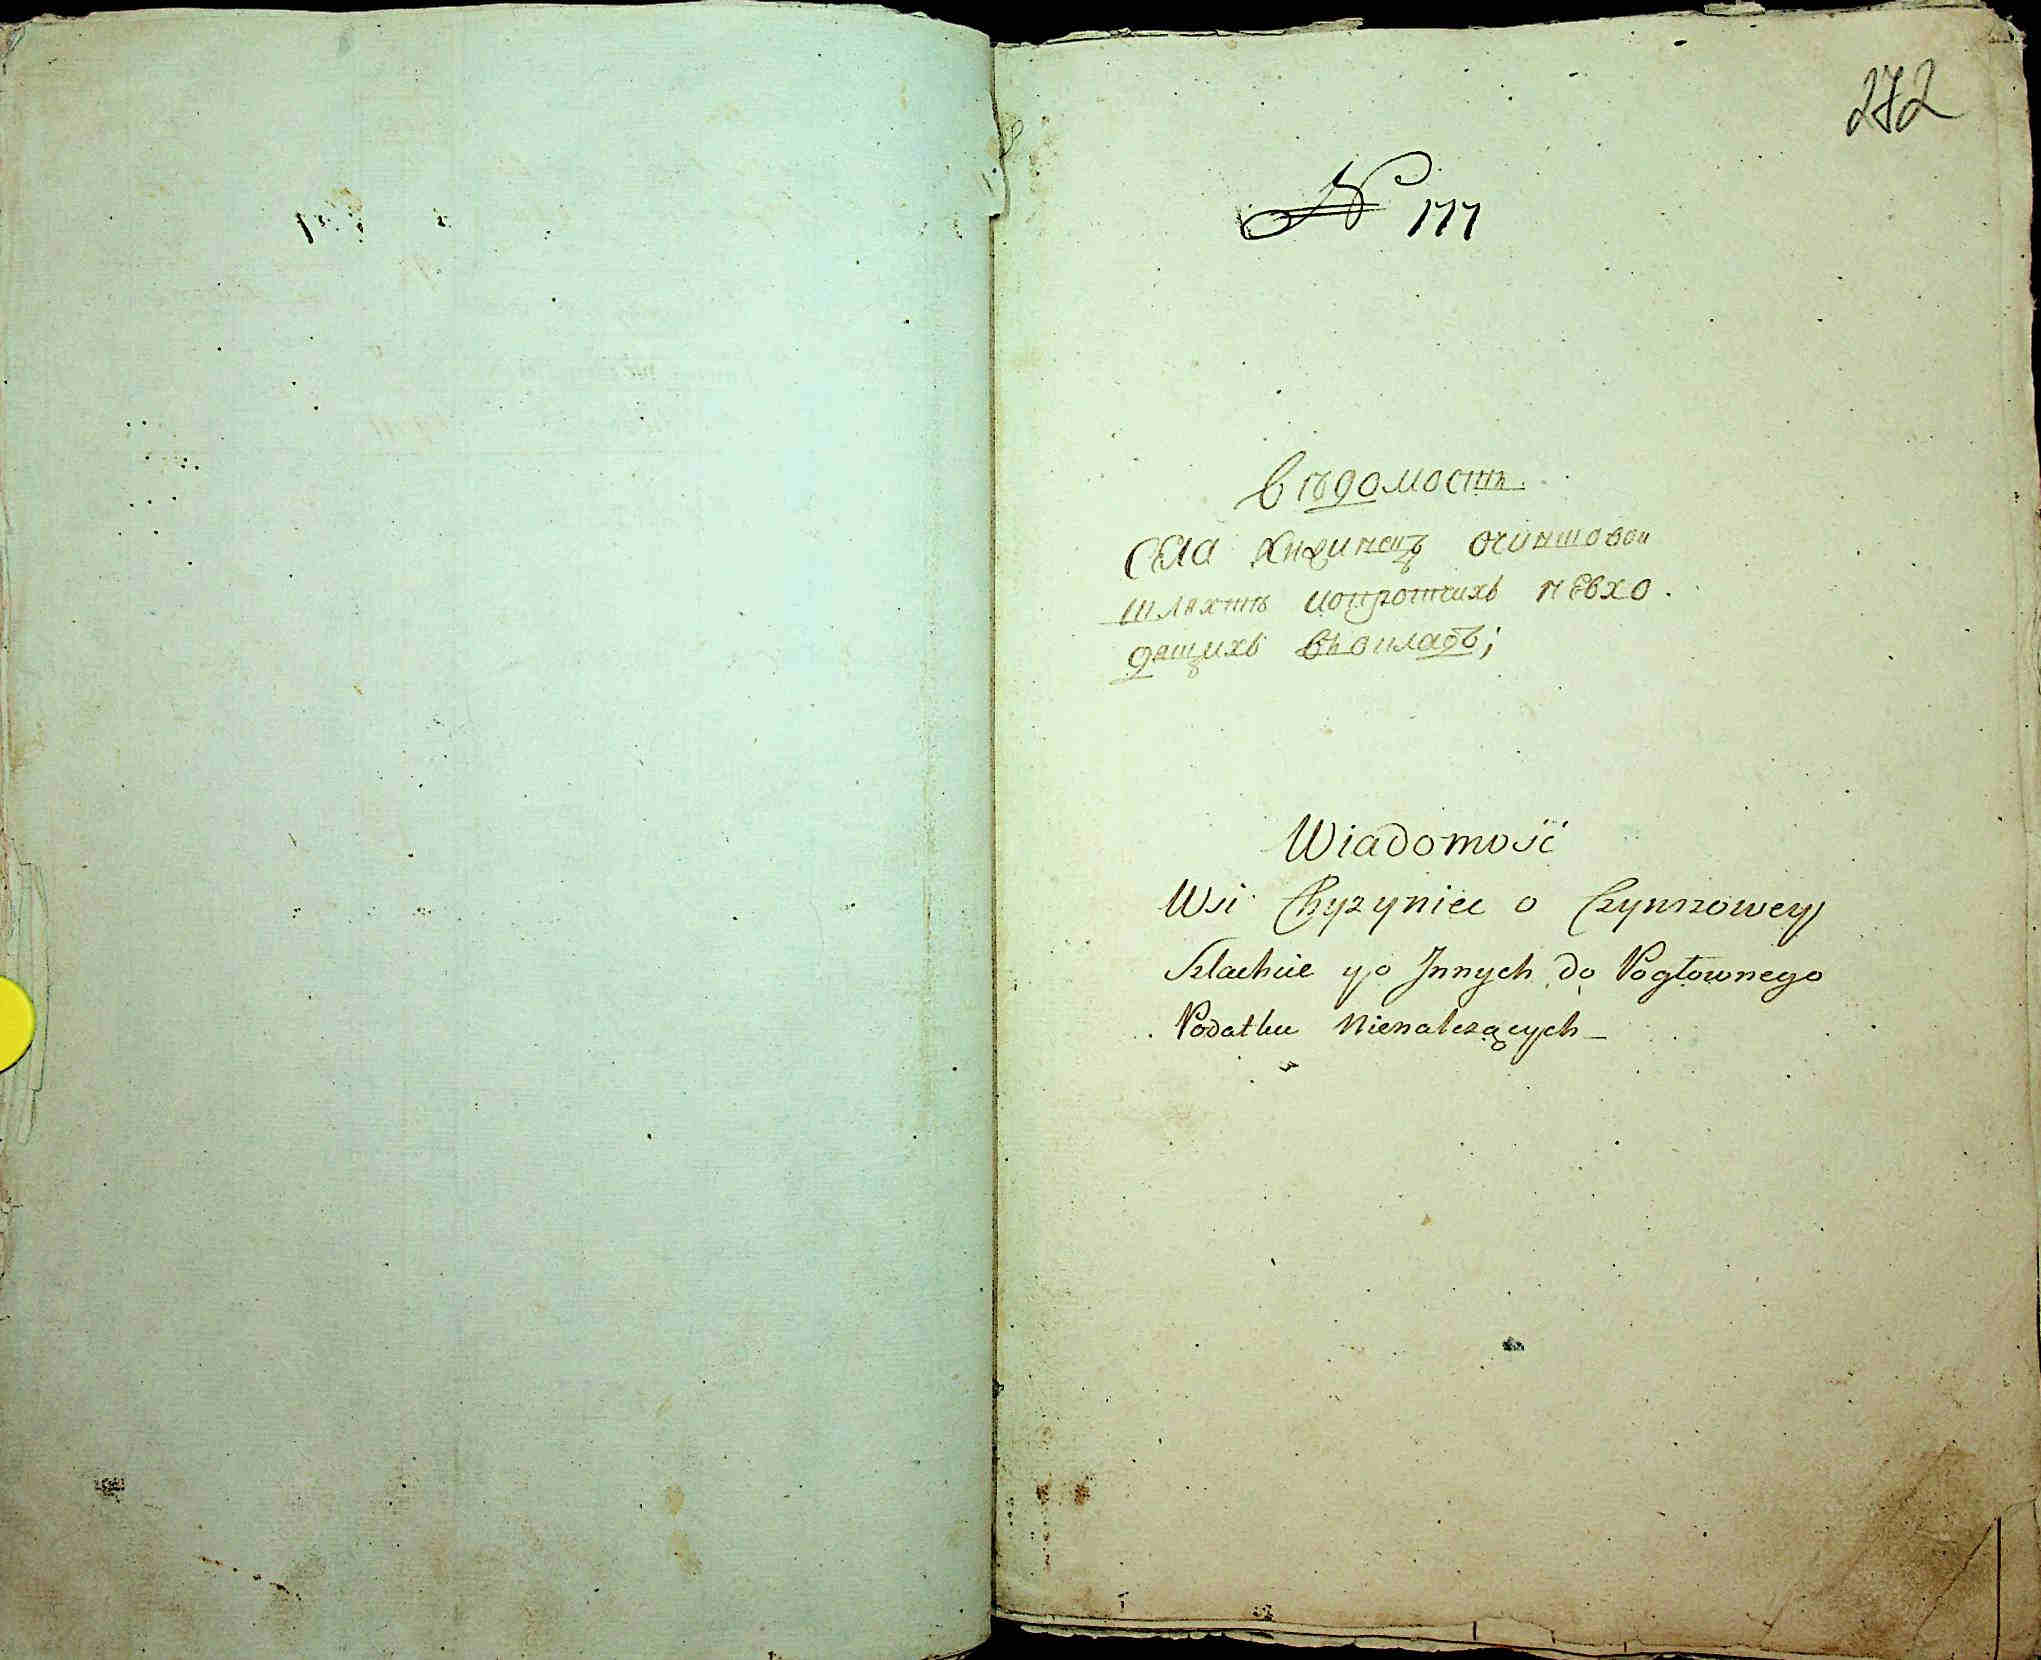 272
№ 177
Вѣдомость
села Хижинецъ очиншовои
шляхтѣ иопротчихъ невхо
дящихъ въокладъ;
Wiadomość
Wsi Chyzyniec o Czynszowey
Szlachcie y o Innych do Pogłownego
Podatku Nienalezących